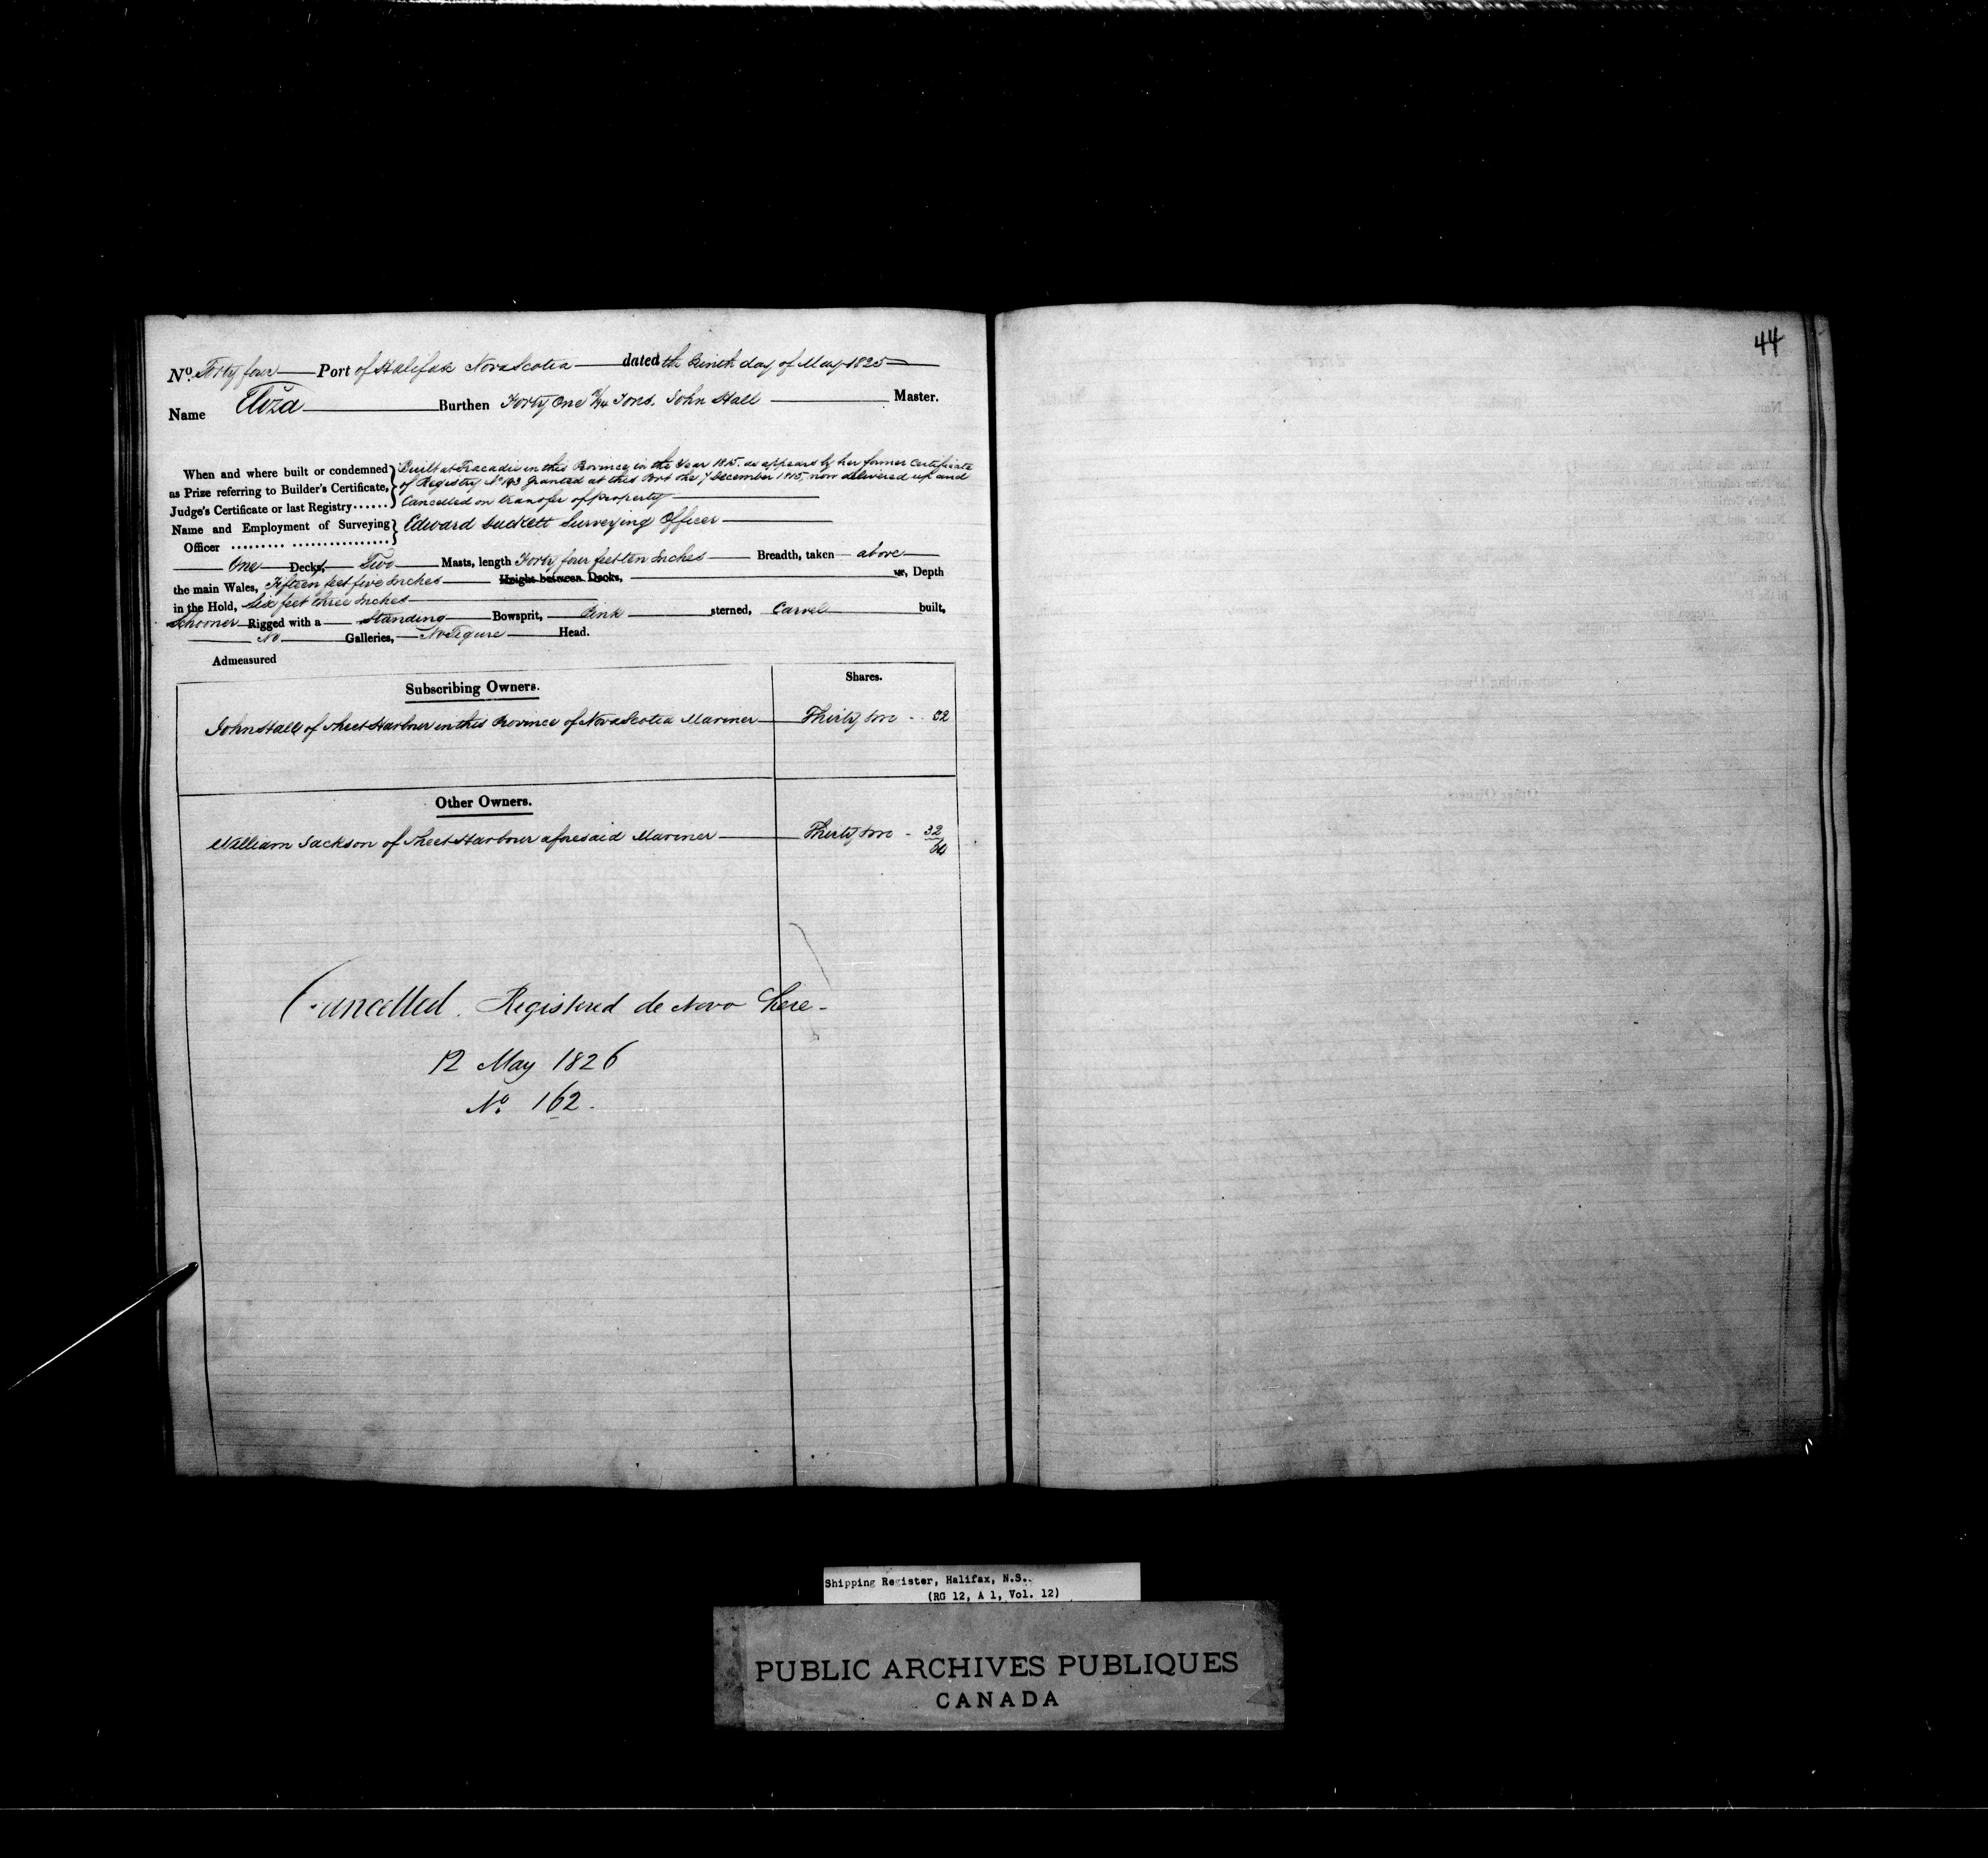 44
No. Forty four Port of Halifax Nova Scotia dated the Ninth day of May 1825
Name Eliza Burthen Forty One Tons. John Hall Master.
When and where built or condemned Built at Tracadie in this Province in the Year 1815. as appears by her former Certificate
as Prize referring to Builder's Certificate, of Registry No 143 granted at this Port the 7 December 1815, now delivered up and
Judge's Certificate or last Registry...... Cancelled on transfer of property
Name and Employment of Surveying Edward Duckett Surveying Officer
Officer
One Decks, Two Masts, length Forty four feet ten Inches Breadth, taken above
the main Wales, Fifteen feet five Inches Height between Decks, Depth
in the Hold, Six feet three Inches
Schooner Rigged with a Standing Bowsprit, Pink sterned, Carvel built,
No Galleries, No Figure Head.
Admeasured
Subscribing Owners. Shares.
John Hall of Sheet Harbour in this Province of Nova Scotia Mariner Thirty two 32
Other Owners.
William Jackson of Sheet Harbour aforesaid Mariner Thirty two 32
64
Cancelled. Registered de Novo here
12 May 1826
No 162.
Shipping Register, Halifax, N.S..
(RG 12, A 1, Vol. 12)
PUBLIC ARCHIVES PUBLIQUES
CANADA